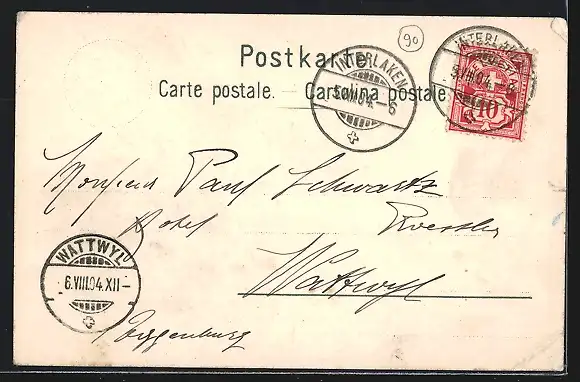 90
Postkarte.
Carte postale. — Cartolina postale
INTERLAKEN
5.VIII.04.–6
INTERLAKEN
5.VIII.04.–6
10
Monsieur Paul Schwartz
Hotel
Wattwyl
Toggenburg
WATTWYL
6.VIII.04.XII–